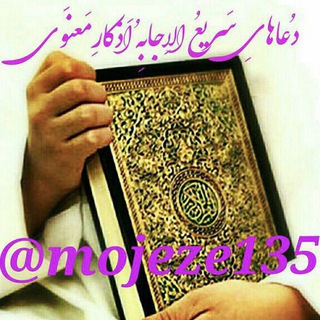 دُعاهایِ سَریعُ الاِجابِهِ اَذکارِ مَعنَوی
@mojeze135